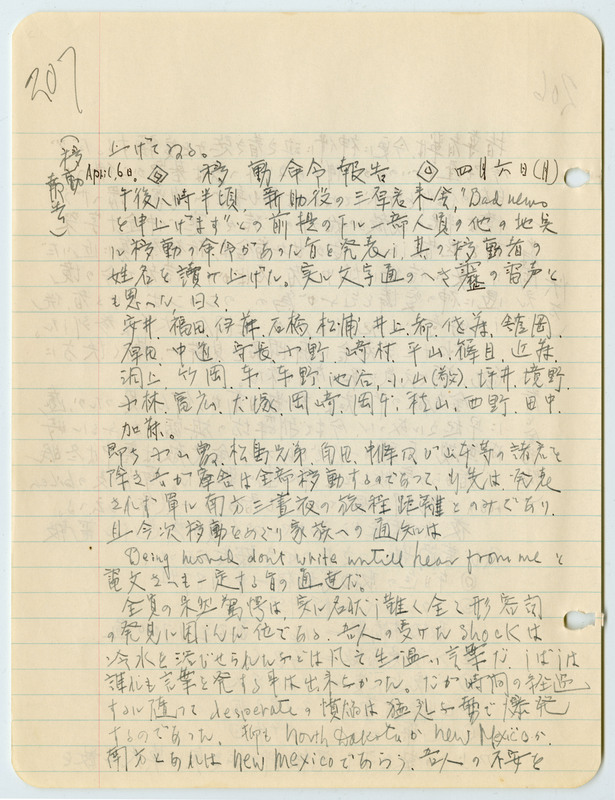 207
(移動報告)
上げてねる。
April, 6日. ◎ 移動命令報告 ◎ 四月六日(月)
午後八時半頃、新助役の三原君来舎、"Bad news
を申上げます"との前提の下に一部人員の他の地点
に移動の命令があった旨を発表し、其の移動者の
姓名を讀み上げた。実に文字通りの霹靂の声だ
も思った、曰く、
安井、福田、伊藤、石橋、松浦、井上、佐藤、鶴岡、
原田、中道、寺長、平山、篠目、近藤、
洞上、竹岡、平野、池谷、小山(敬)、坪井、境野、
小林、富広、犬塚、岡崎、岡本、桂山、西野、田中、
加藤。
即ち小山、松島兄弟、角田、及び山本等の諸君を
除き吾が宿舎は全部移動するのであって、行先は発表
されず単に南方三晝夜の旅程距離とのみであり、
且今次移動をめぐり家族への通知は
Being moved don't write untill hear from me と
電文さへも一定する旨の通達だ。
全員の呆然驚愕は、実に名状し難く全く形容詞
の発見に困しんだ位である。吾人の受けた shock は
冷水を浴びせられたなどは凡そ生温い言葉だ、しばしは
誰れも言葉を発する事は出来なかった。だが時間の経過
するに随って desperate の憤懣は猛烈な勢で爆発
するのであった。抑も North Dakota か New Mexico か、
南方とあれば New Mexico であらう、吾人の不安を